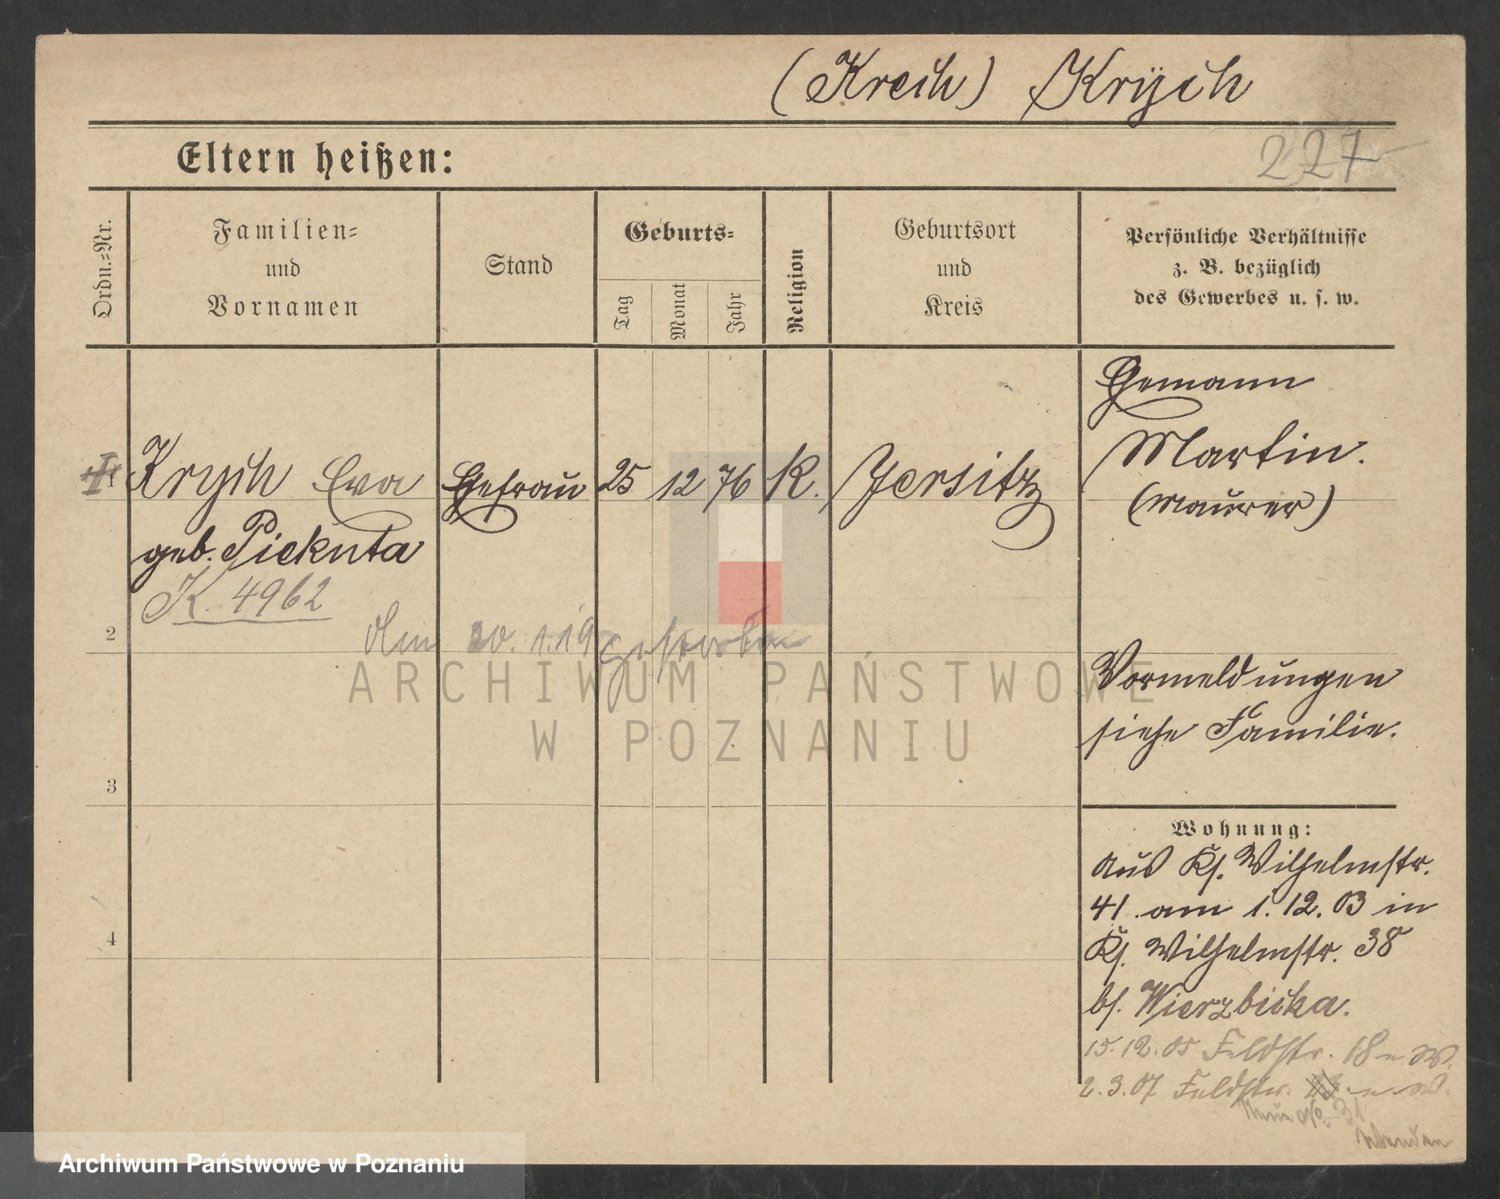 (Kreih) Krÿch
227
Eltern heißen:
Ordn.-Nr.
Familien-
und
Vornamen
Stand
Geburts-
Tag
Monat
Jahr
Religion
Geburtsort
und
Kreis
Persönliche Verhältnisse
z. B. bezüglich
des Gewerbes u. s. w.
Ehemann
Martin.
(Maurer)
1 Krych Eva Ehefrau 25 12 76 K. Jersitz
geb. Piekuta
K. 4962
2
Am 20. 1. 19 gestorben
Vormeldungen
siehe Familie.
3
4
Wohnung:
Aus Ks. Wilhelmstr.
41 am 1. 12. 03 in
Ks. Wilhelmstr. 38
bs. Wierzbicka.
15. 12. 05 Feldstr. 18
2. 3. 07 Feldstr.
31
ARCHIWUM PAŃSTWOWE
W POZNANIU
Archiwum Państwowe w Poznaniu